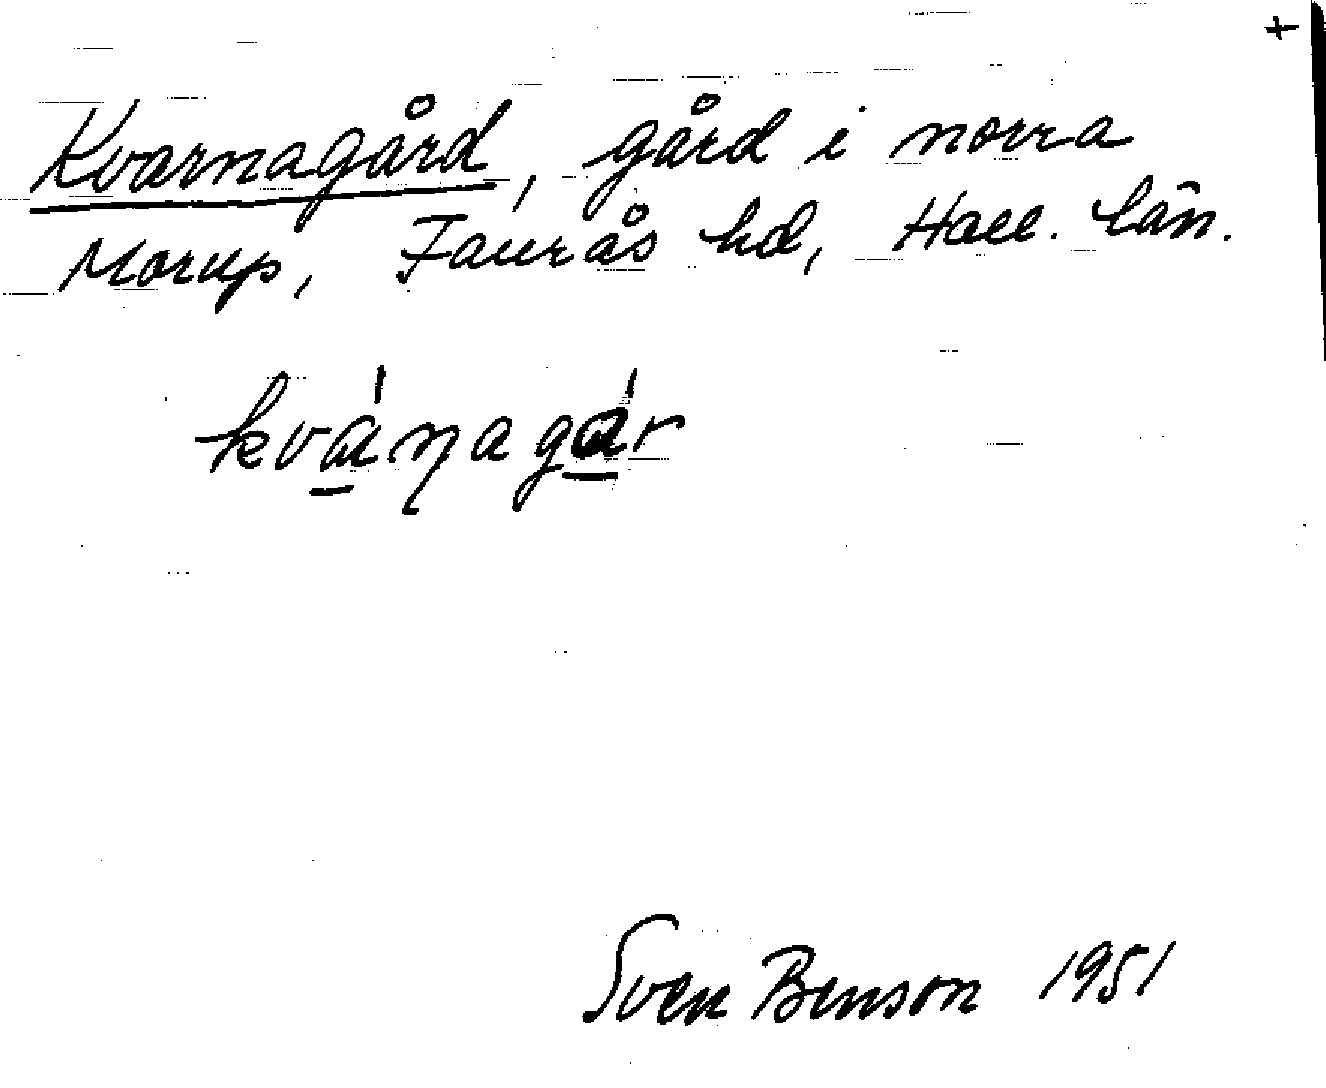 +
Kvarnagård, gård i norra
Morup, Faurås hd, Hall. län.
kvánagár
Sven Benson 1951